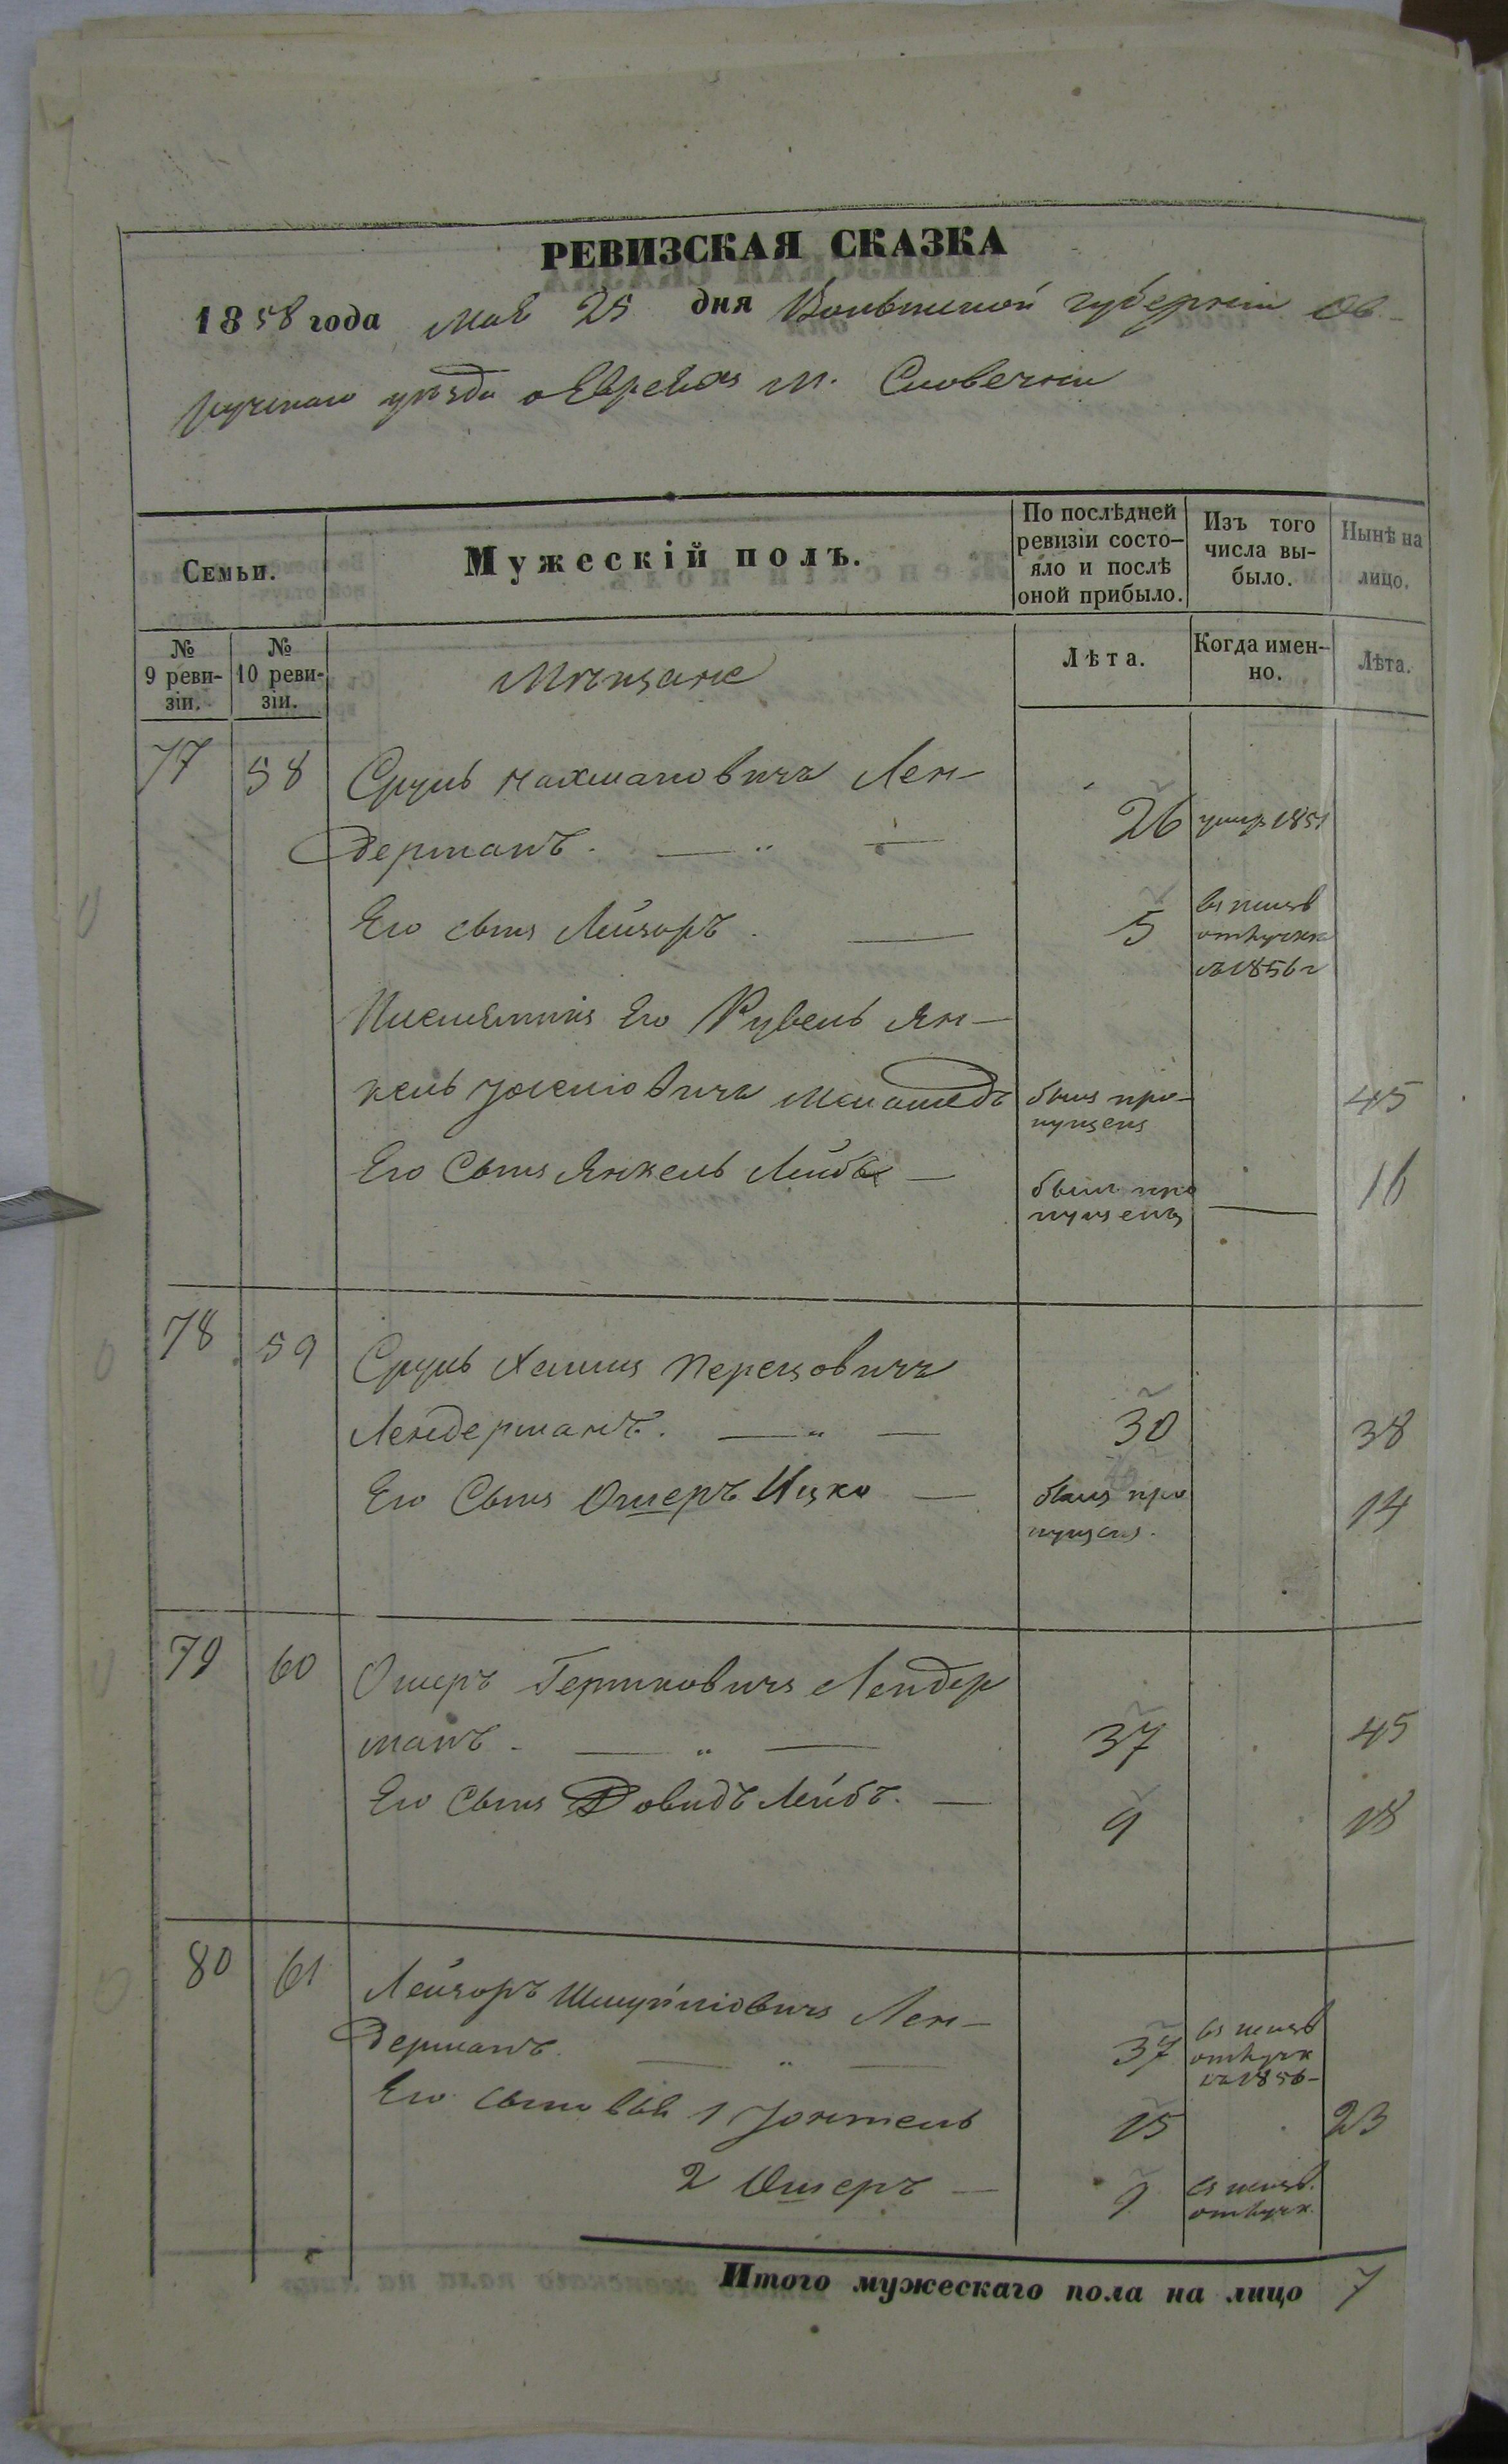 РЕВИЗСКАЯ СКАЗКА
1858 года Мая 25 дня Волынской губернiи Ов-
ручскаго уѣзда о Евреяхъ м. Словечни
Семьи.
Мужескій полъ.
По послѣдней ревизіи состо-яло и послѣ оной прибыло.
Изъ того числа вы-было.
Нынѣ на лицо.
№ 9 реви-зіи.
№ 10 реви-зіи.
Мѣщане
Лѣта.
Когда имен-но.
Лѣта.
77 58 Сруль Нахмановичъ Лен-
дерманъ. — „ — 26 умер 1851
Его сынъ Лейзоръ. — 5 въ неизв отлучкѣ съ 1856 г
Племянникъ Его Рувель Ян-
кель Іосьiовичъ был про-пущенъ 45
Его Сынъ Янкель Лейба — былъ про пущенъ — 16
78 59 Сруль Хаимъ Перецовичъ
Лендерманъ. — „ — 30 38
Его Сынъ Ошеръ Ицко — былъ про пущенъ. 14
79 60 Ошеръ Гершковичъ Лендер
манъ. — „ — 37 45
Его Сынъ Довидъ Лейбъ. — 9 18
80 61 Лейзоръ Шмуйловичъ Лен-
дерманъ. — „ — 37 въ неизв отлучк съ 1856-
Его сыновья 1 Іонтель 15 23
2 Ошеръ — 9 въ неизв. отлучк.
Итого мужескаго пола на лицо 7